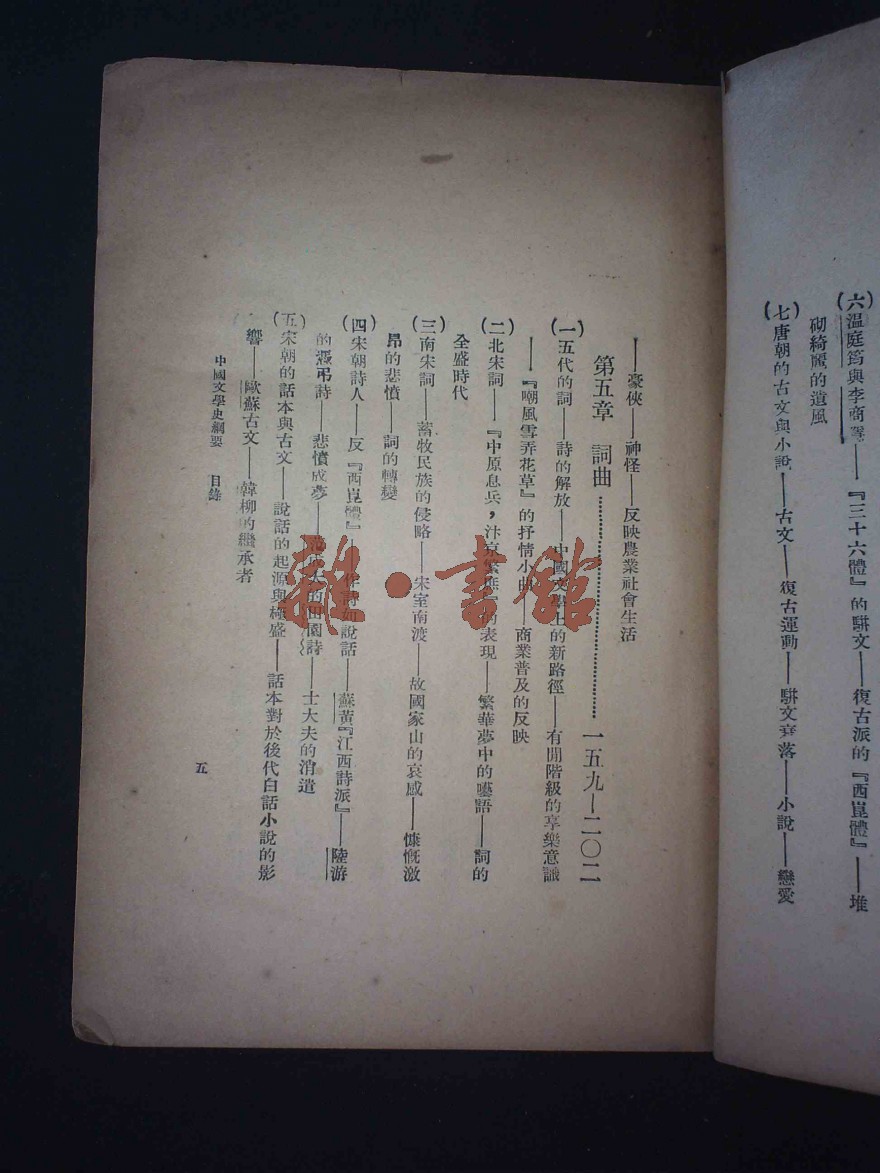 (六)溫庭筠與李商隱——『三十六體』的駢文——復古派的『西崑體』——堆
砌綺麗的遺風
(七)唐朝的古文與小說——古文——復古運動——駢文衰落——小說——戀愛
——豪俠——神怪——反映農業社會生活
第五章 詞曲……………一五九—二〇二
(一)五代的詞——詩的解放——中國文學上的新路徑——有閒階級的享樂意識
——『嘲風雪弄花草』的抒情小曲——商業普及的反映
(二)北宋詞——『中原息兵,汴京繁庶』的表現——繁華夢中的囈語——詞的
全盛時代
(三)南宋詞——畜牧民族的侵略——宋室南渡——故國家山的哀感——慷慨激
昂的悲憤——詞的轉變
(四)宋朝詩人——反『西崑體』——作詩如說話——蘇黃『江西詩派』——陸游
的憑弔詩——悲憤成夢——范成大的田園詩——士大夫的消遣
(五)宋朝的話本與古文——說話的起源與極盛——話本對於後代白話小說的影
響——歐蘇古文——韓柳的繼承者
中國文學史綱要 目錄
五
雜·書館